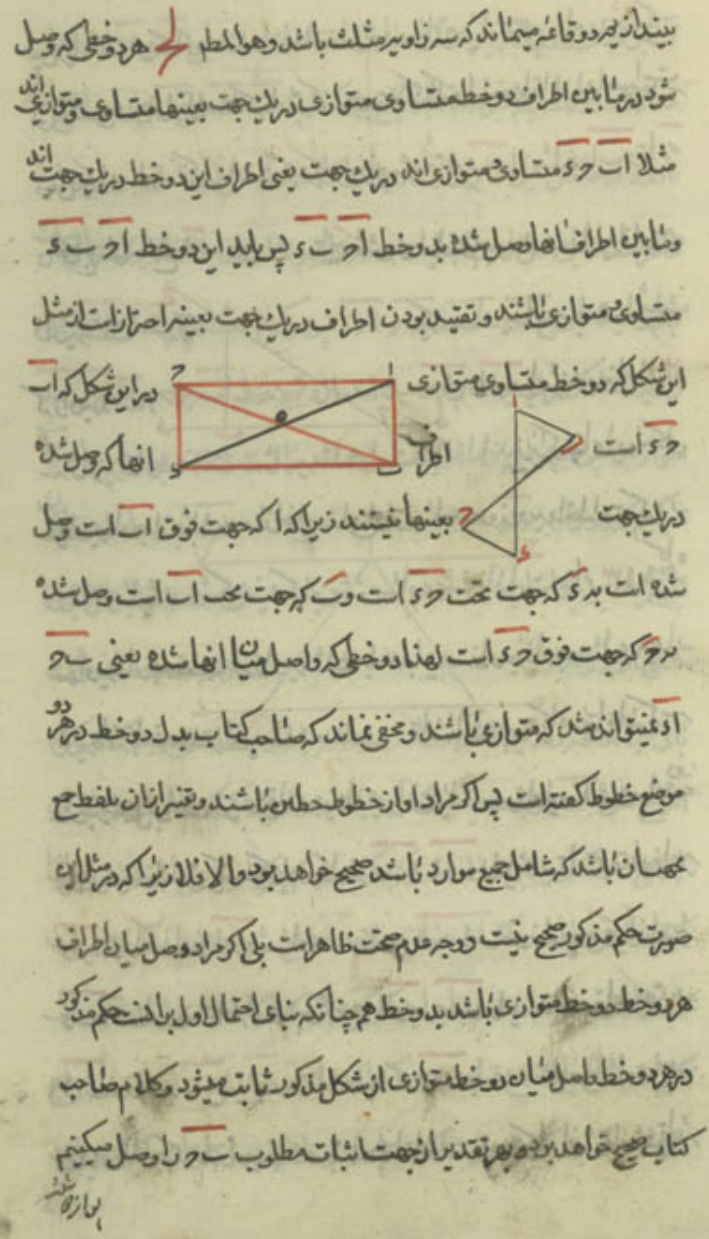 بینداز یمه دو قائمه میماند که سه زاویه مثلث باشد وهو المط لج هر دو خطی که وصل
شود در مابین اطراف دو خط متساوی متوازی در یک جهت بعینها متساوی و متوازی اند
مثلا اب حء متساوی و متوازی اند در یک جهت یعنی اطراف این دو خط در یک جهت اند
ومابین اطراف انها وصل شده بدو خط اح بء پس باید این دو خط اح بء
متساوی و متوازی باشند و تقیید بودن اطراف در یک جهت بعینه احتراز است از مثل
این شکل که دو خط متساوی متوازی
در این شکل که اب
حء است
اطراف
انها که وصل شده
در یک جهت
بعینها نیستند زیرا که ا که جهت فوق اب است وصل
شده است به ء که جهت تحت حء است و ب که جهت تحت اب است وصل شده
به ح که جهت فوق حء است لهذا دو خطی که واصل میان انها شده یعنی بح
اء نمیتواند شد که متوازی باشند و مخفی نماند که صاحب کتاب بدل دو خط در هر دو
موضع خطوط گفته است پس اکر مراد او از خطوط خطین باشند و تعبیر ازان بلفظ جمع
باشد که شامل جمیع موارد باشد صحیح خواهد بود والا فلا زیرا که در مثل این
صورت حکم مذکور صحیح نیست و وجه عدم صحت ظاهر است بلی اکر مراد وصل میان اطراف
هر دو خط دو خط متوازی باشد بدو خط هم چنانکه بنای احتمال اول بر انست حکم مذکور
در هر دو خط واصل میان دو خط متوازی از شکل مذکور ثابت میشود و کلام صاحب
کتاب صحیح خواهد بود و بهر تقدیر از جهت اثبات مطلوب بح را وصل میکنیم